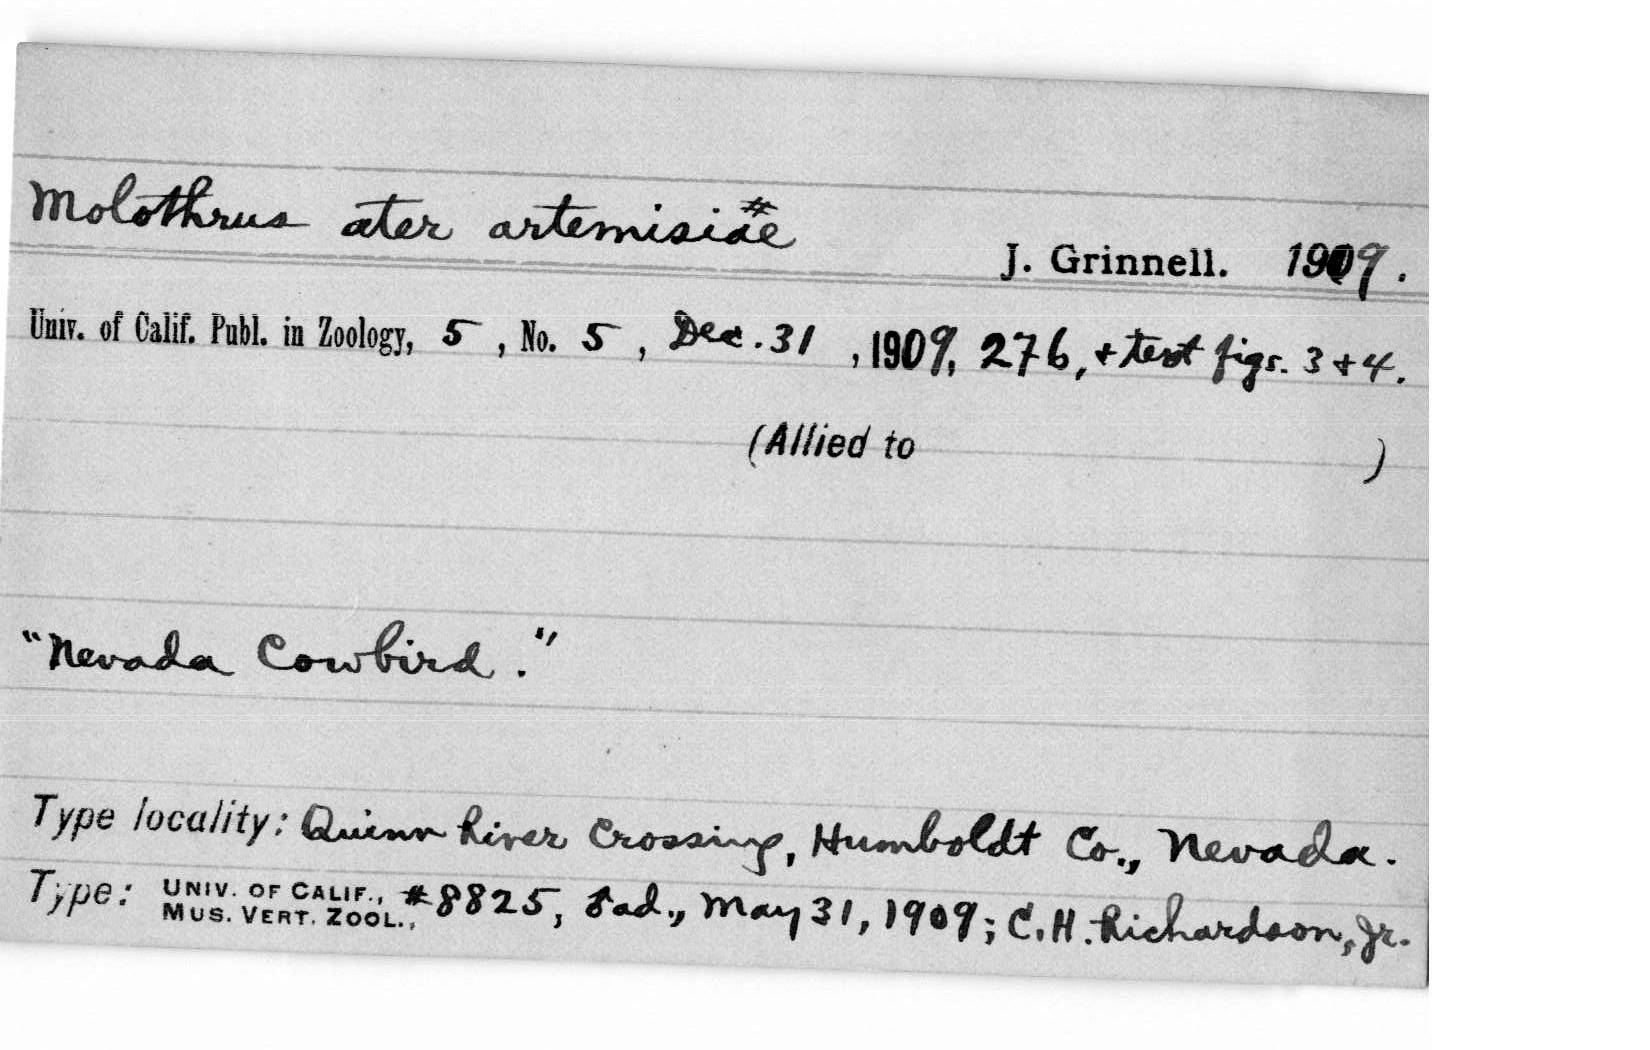 Molothrus ater artemisiae #
J. Grinnell. 1909.
Univ. of Calif. Publ. in Zoology, 5, No. 5, Dec. 31, 1909, 276, + text figs. 3 + 4.
(Allied to )
"Nevada Cowbird."
Type locality: Quinn River Crossing, Humboldt Co., Nevada.
Type: UNIV. OF CALIF., MUS. VERT. ZOOL., #8825, ad., May 31, 1909; C. H. Richardson, Jr.